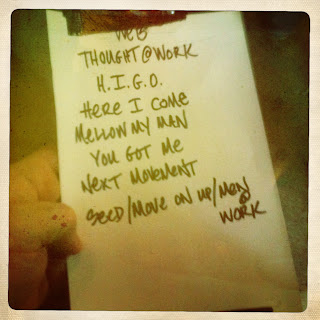 WEB
THOUGHT@WORK
H.I.G.O.
HERE I COME
MELLOW MY MAN
YOU GOT ME
NEXT MOVEMENT
SEED/MOVE ON UP/MEN
@
WORK